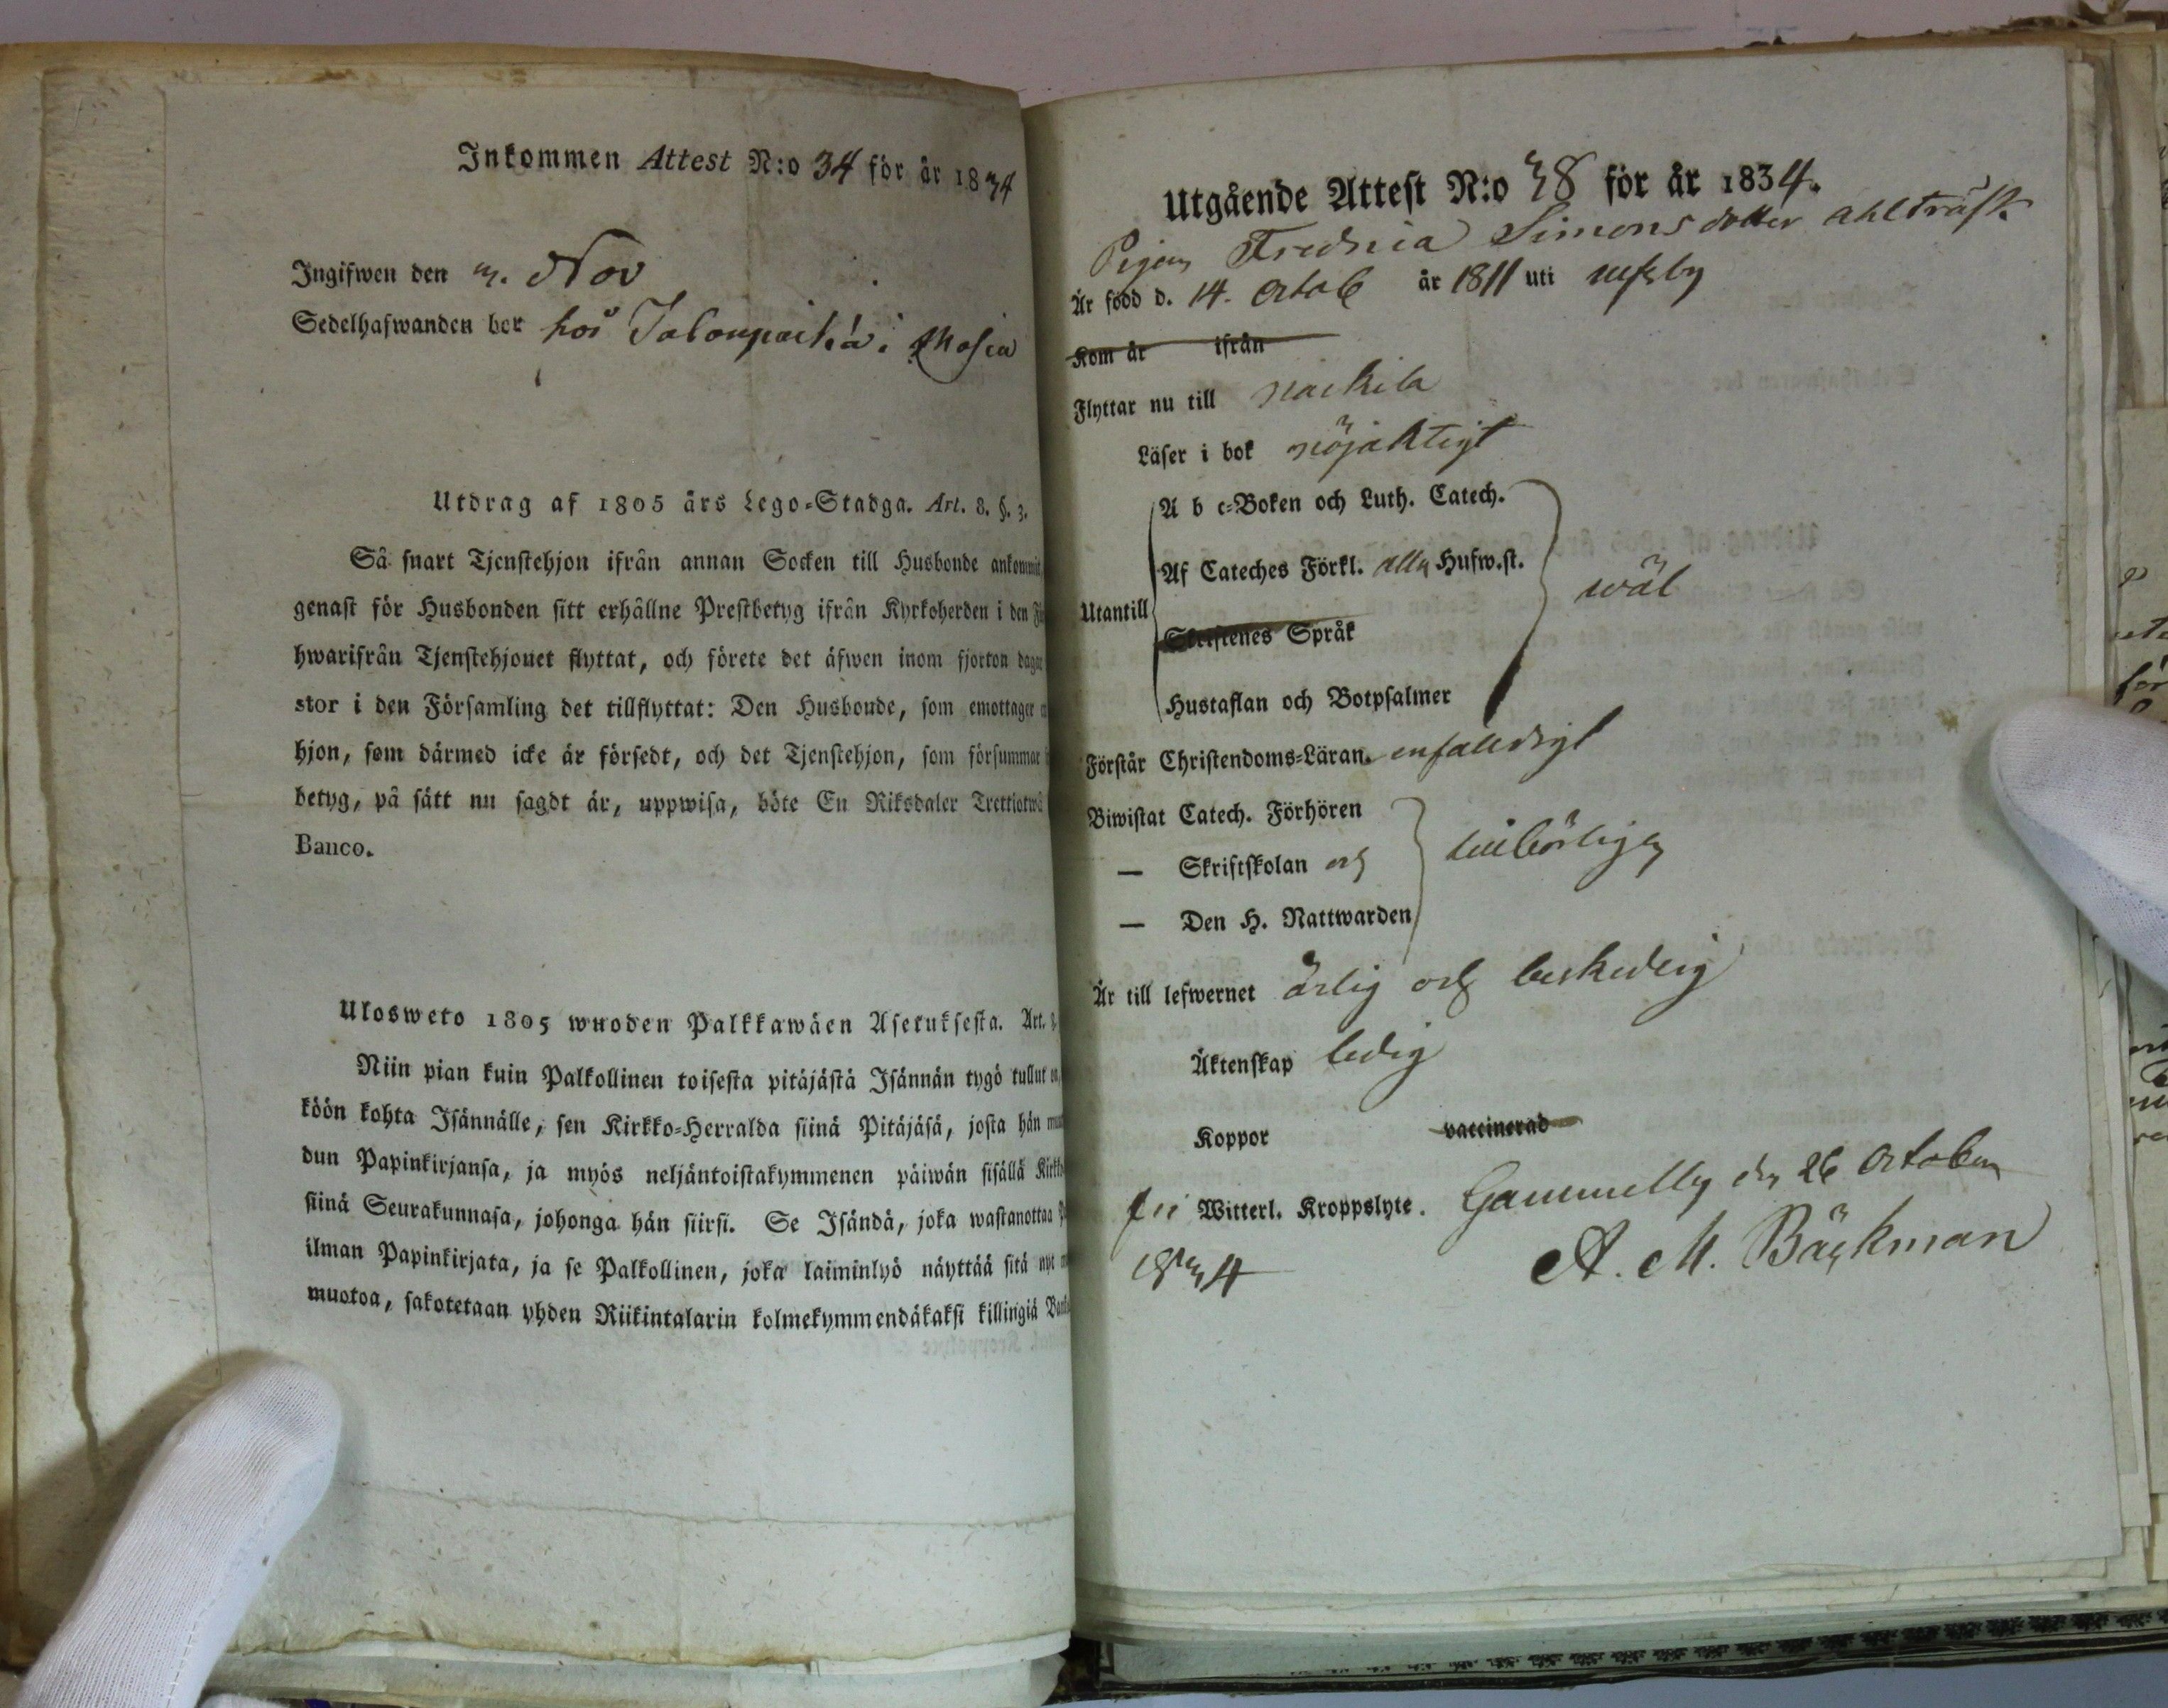 Inkommen Attest N:o 34 för år 1834
Ingifwen den 3. Nov
Sedelhafwanden bor hos i
Utdrag af 1805 års Lego-Stadga. Art. 8. §. 3.
Så snart Tjenstehjon ifrån annan Socken till Husbonde ankommit,
genast för Husbonden sitt erhållne Prestbetyg ifrån Kyrkoherden i den
hwarifrån Tjenstehjonet flyttat, och förete det äfwen inom fjorton dagar
stor i den Församling det tillflyttat: Den Husbonde, som emottager
hjon, som därmed icke är försedt, och det Tjenstehjon, som försummar
betyg, på sätt nu sagdt är, uppwisa, böte En Riksdaler Trettiotwå
Banco.
Ulosweto 1805 wuoden Palkkawäen Asetuksesta. Art. 8.
Niin pian kuin Palkollinen toisesta pitäjästä Isännän tygö tullut on,
köön kohta Isännälle, sen Kirkko-Herralda siinä Pitäjäsä, josta hän
dun Papinkirjansa, ja myös neljäntoistakymmenen päiwän sisällä
siinä Seurakunnasa, johonga hän siirsi. Se Isändä, joka wastanottaa
ilman Papinkirjata, ja se Palkollinen, joka laiminlyö näyttää sitä nyt
muotoa, sakotetaan yhden Riikintalarin kolmekymmendäkaksi killingiä
Utgående Attest N:o 38 för år 1834.
Pigan Fredrica Simonsdotter Ahlträsk
Är född d. 14. Octob år 1811 uti
Kom år ifrån
Flyttar nu till Nackila
Läser i bok nöjaktigt
A b c-Boken och Luth. Catech.
Af Cateches Förkl. alla Hufw.st.
Utantill wäl
Skriftenes Språk
Hustaflan och Botpsalmer
Förstår Christendoms-Läran. enfaldigt
Biwistat Catech. Förhören
— Skriftskolan och tillbörligen
— Den H. Nattwarden
Är till lefwernet ärlig och beskedlig
Äktenskap ledig
Koppor vaccinerad
fri Witterl. Kroppslyte. Gammelby den 26 October
1834 A. M. Bäckman